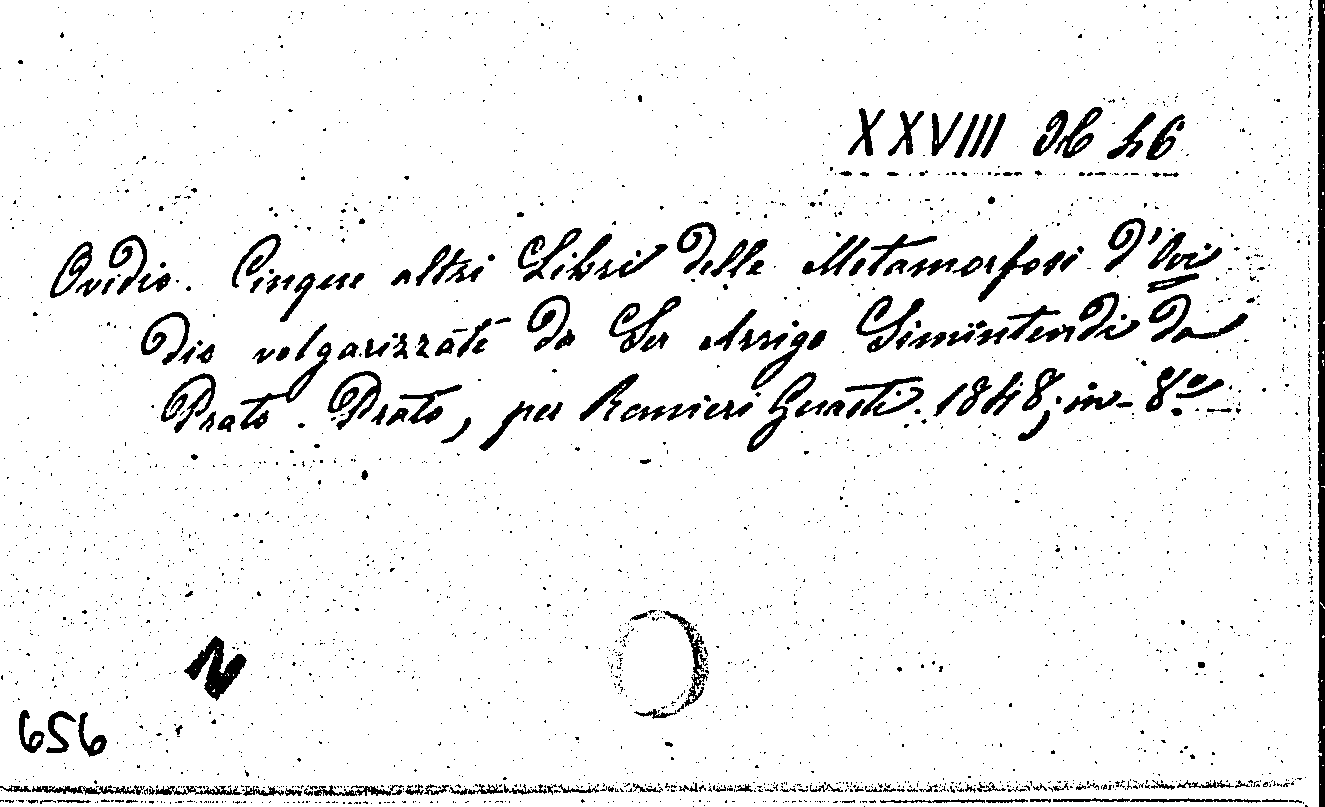 XXVIII H 46
Ovidio. Cinque altri Libri delle Metamorfosi d'Ovi
dio volgarizzate da Ser Arrigo Simintendi da
Prato. Prato, per Ranieri Guasti. 1848; in-8º
N
656